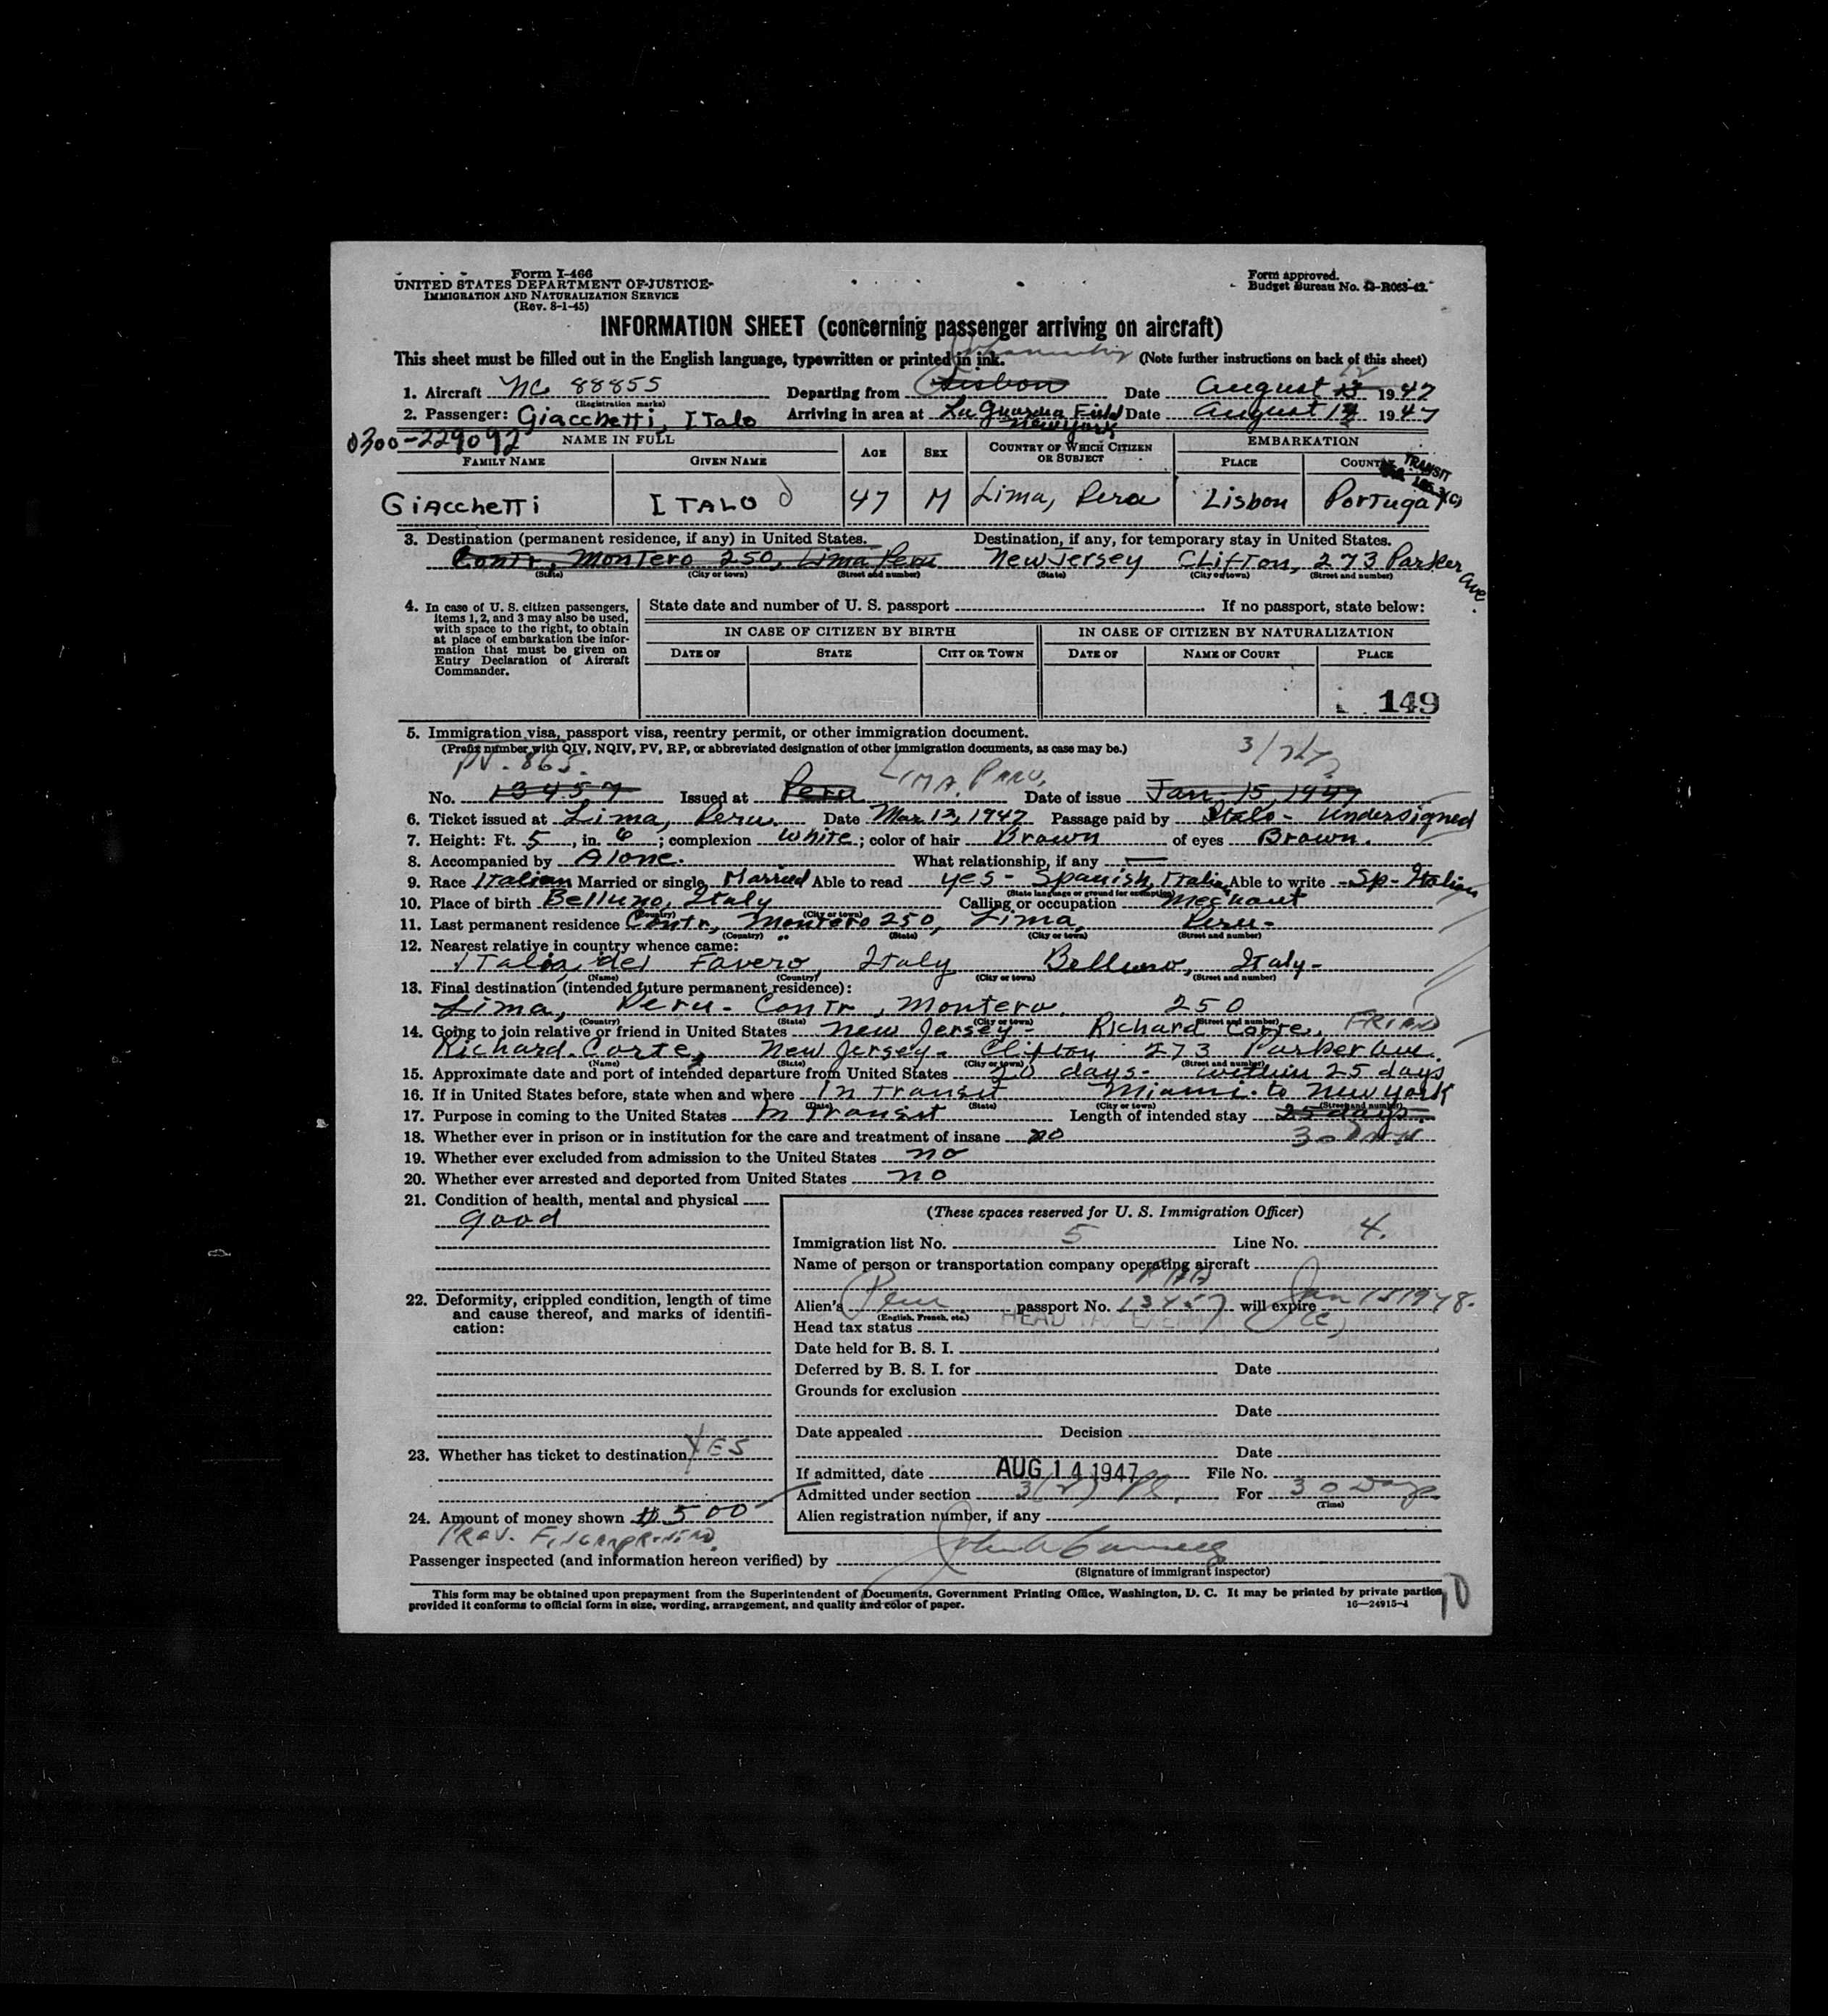 Form I-466
UNITED STATES DEPARTMENT OF JUSTICE
IMMIGRATION AND NATURALIZATION SERVICE
(Rev. 8-1-45)
Form approved.
Budget Bureau No. 43-R063-42.
INFORMATION SHEET (concerning passenger arriving on aircraft)
This sheet must be filled out in the English language, typewritten or printed in ink. (Note further instructions on back of this sheet)
1. Aircraft NC 88855 Departing from Lisbon Date August 12 1947
(Registration marks)
2. Passenger: Giacchetti, Italo Arriving in area at La Guardia Field New York Date August 1947
0300-229092
NAME IN FULL AGE SEX COUNTRY OF WHICH CITIZEN OR SUBJECT EMBARKATION
FAMILY NAME GIVEN NAME PLACE COUNTRY
TRANSIT
Giacchetti ITALO 47 M Lima, Peru Lisbon Portugal
3. Destination (permanent residence, if any) in United States. Destination, if any, for temporary stay in United States.
Contr, Montero 250, Lima Peru New Jersey Clifton, 273 Parker Ave.
(State) (City or town) (Street and number) (State) (City or town) (Street and number)
4. In case of U. S. citizen passengers, items 1, 2, and 3 may also be used, with space to the right, to obtain at place of embarkation the information that must be given on Entry Declaration of Aircraft Commander.
State date and number of U. S. passport If no passport, state below:
IN CASE OF CITIZEN BY BIRTH IN CASE OF CITIZEN BY NATURALIZATION
DATE OF STATE CITY OR TOWN DATE OF NAME OF COURT PLACE
149
5. Immigration visa, passport visa, reentry permit, or other immigration document.
(Prefix number with QIV, NQIV, PV, RP, or abbreviated designation of other immigration documents, as case may be.)
PV. 865. LIMA, PERU,
No. 13457 Issued at Peru Date of issue Jan, 15, 1947
6. Ticket issued at Lima, Peru. Date Mar 12, 1947 Passage paid by Italo - Undersigned
7. Height: Ft. 5, in. 6; complexion White; color of hair Brown of eyes Brown.
8. Accompanied by Alone. What relationship, if any —
9. Race Italian Married or single Married Able to read yes - Spanish, Italia Able to write -Sp- Italian
(State language or ground for exemption)
10. Place of birth Belluno, Italy Calling or occupation Mechant
(Country) (City or town)
11. Last permanent residence Contr, Montero 250, Lima, Peru-
(Country) (State) (City or town) (Street and number)
12. Nearest relative in country whence came:
Italia del Favero, Italy Belluno, Italy-
(Name) (Country) (City or town) (Street and number)
13. Final destination (intended future permanent residence):
Lima, Peru- Contr, Montero, 250
(Country) (State) (City or town) (Street and number)
14. Going to join relative or friend in United States New Jersey- Richard Corte, FRIEND
Richard. Corte, New Jersey- Clifton 273 Parker Ave.
(Name) (State) (City or town) (Street and number)
15. Approximate date and port of intended departure from United States 20 days- within 25 days
16. If in United States before, state when and where In Transit Miami- to New York
(Date) (State) (City or town) (Street and number)
17. Purpose in coming to the United States In Transit Length of intended stay 25 days
30 DAYS
18. Whether ever in prison or in institution for the care and treatment of insane no
19. Whether ever excluded from admission to the United States no
20. Whether ever arrested and deported from United States no
21. Condition of health, mental and physical
good
(These spaces reserved for U. S. Immigration Officer)
Immigration list No. 5 Line No. 4.
Name of person or transportation company operating aircraft
PAA
22. Deformity, crippled condition, length of time and cause thereof, and marks of identification:
Alien's Peru passport No. 13457 will expire Jan 15 1948.
(English, French, etc.)
Head tax status HEAD TAX EXEMPT
Date held for B. S. I.
Deferred by B. S. I. for Date
Grounds for exclusion
Date
Date appealed Decision
Date
23. Whether has ticket to destination YES
If admitted, date AUG 14 1947 File No.
Admitted under section 3(2) For 30 Days
(Time)
24. Amount of money shown $500
Alien registration number, if any
PREV. FINGERPRINTED.
Passenger inspected (and information hereon verified) by
(Signature of immigrant inspector)
This form may be obtained upon prepayment from the Superintendent of Documents, Government Printing Office, Washington, D. C. It may be printed by private parties,
provided it conforms to official form in size, wording, arrangement, and quality and color of paper. 16—24915-1